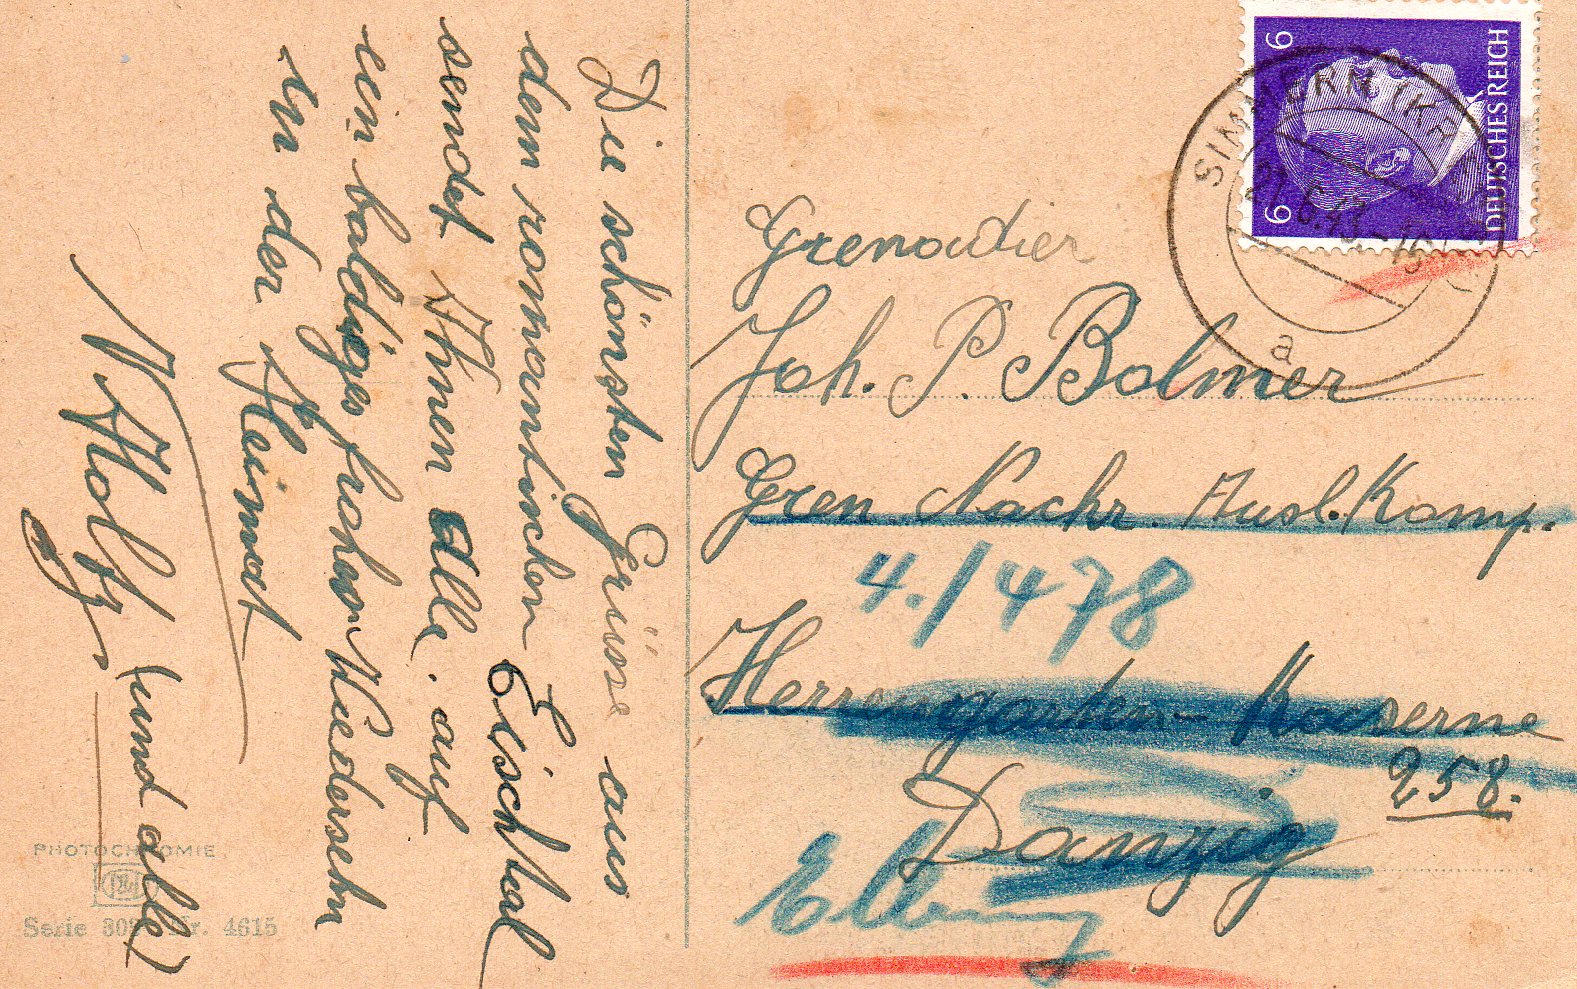 Die schönsten Grüsse aus
dem romantischen Eischtal
sendet Ihnen alle. auf
ein baldiges frohes Wiedersehn
in der Heimat
(und alle)
PHOTOCHROMIE
Serie 302 Nr. 4615
6 6
DEUTSCHES REICH
SIMMERN (KR
21.6.43.-16
a
Grenadier
Joh. P. Bolmer
Gren Nachr. Ausl. Komp.
4./478
Herrengarten-Kaserne
258.
Danzig
Elbing